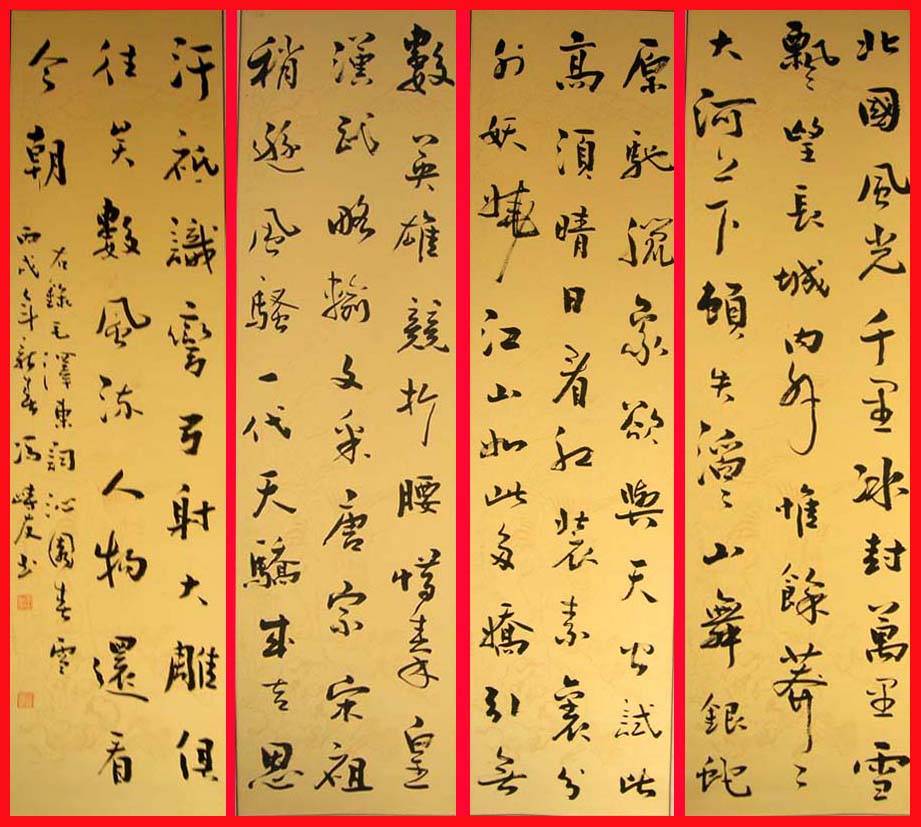 北國風光千里冰封萬里雪
飄〻望長城內外惟餘莽〻
大河上下頓失滔〻山舞銀蛇
原馳臘象欲與天公試比
高須晴日看紅裝素裹分
外妖嬈江山如此多嬌引無
數英雄競折腰惜秦皇
漢武略輸文采唐宗宋祖
稍遜風騷一代天驕成吉思
汗祇識彎弓射大雕俱
往矣數風流人物還看
今朝
右錄毛澤東詞沁園春雪
丙戌年新春馮